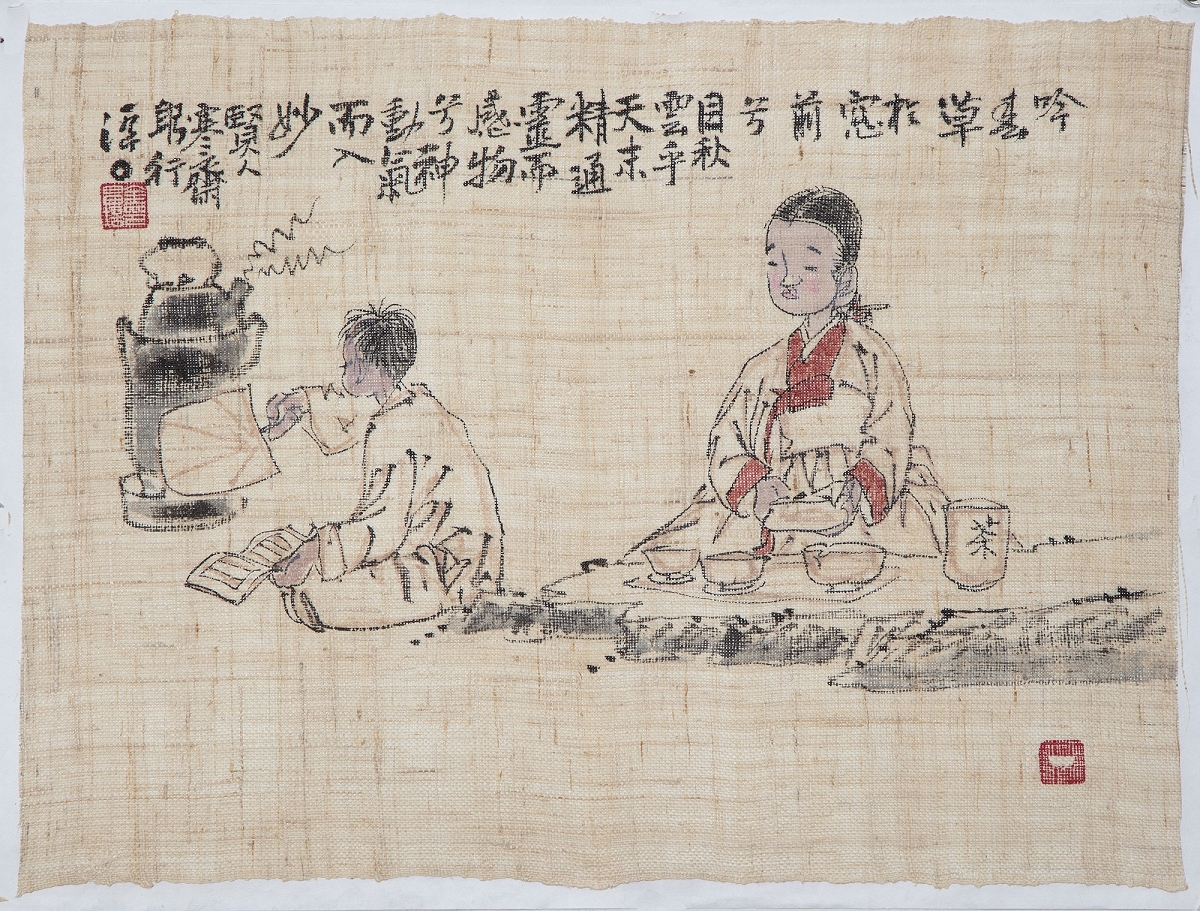 吟
春
草
於
窓
前
兮
目秋
雲乎
天末
精通
靈而
感物
兮神
動氣
而入
妙
賢人
寒齋
行
淳
茶